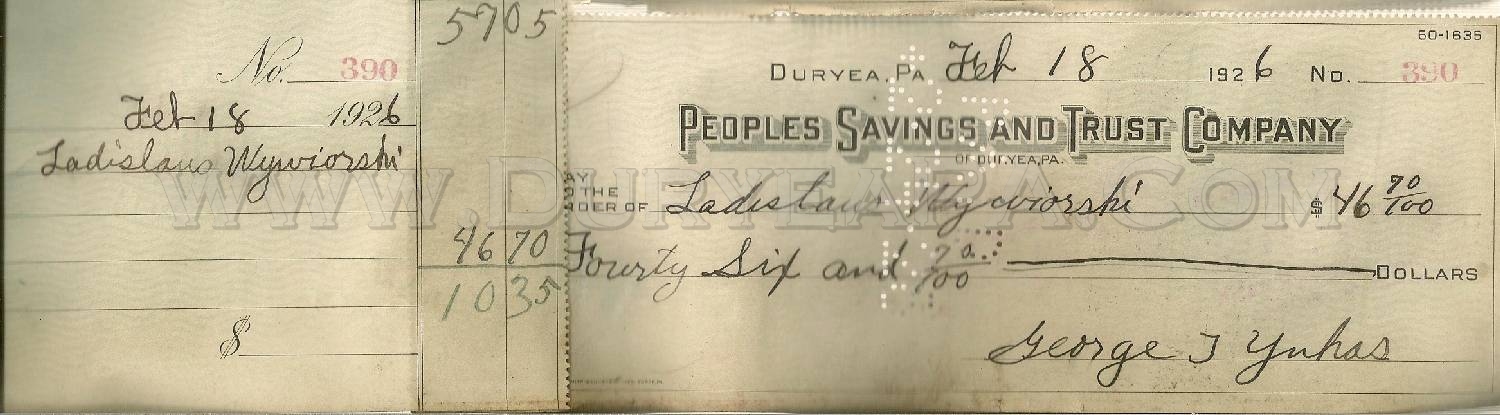 No. 390
Feb 18 1926
Ladislaus Wywiorski
$
57 05
46 70
10 35
60-1635
DURYEA, PA. Feb 18 1926 No. 390
PEOPLES SAVINGS AND TRUST COMPANY
OF DURYEA, PA.
AY
O THE
RDER OF Ladislaus Wywiorski $46 70/100
Fourty Six and 70/100 DOLLARS
George J Yuhas
WWW.DURYEAPA.COM